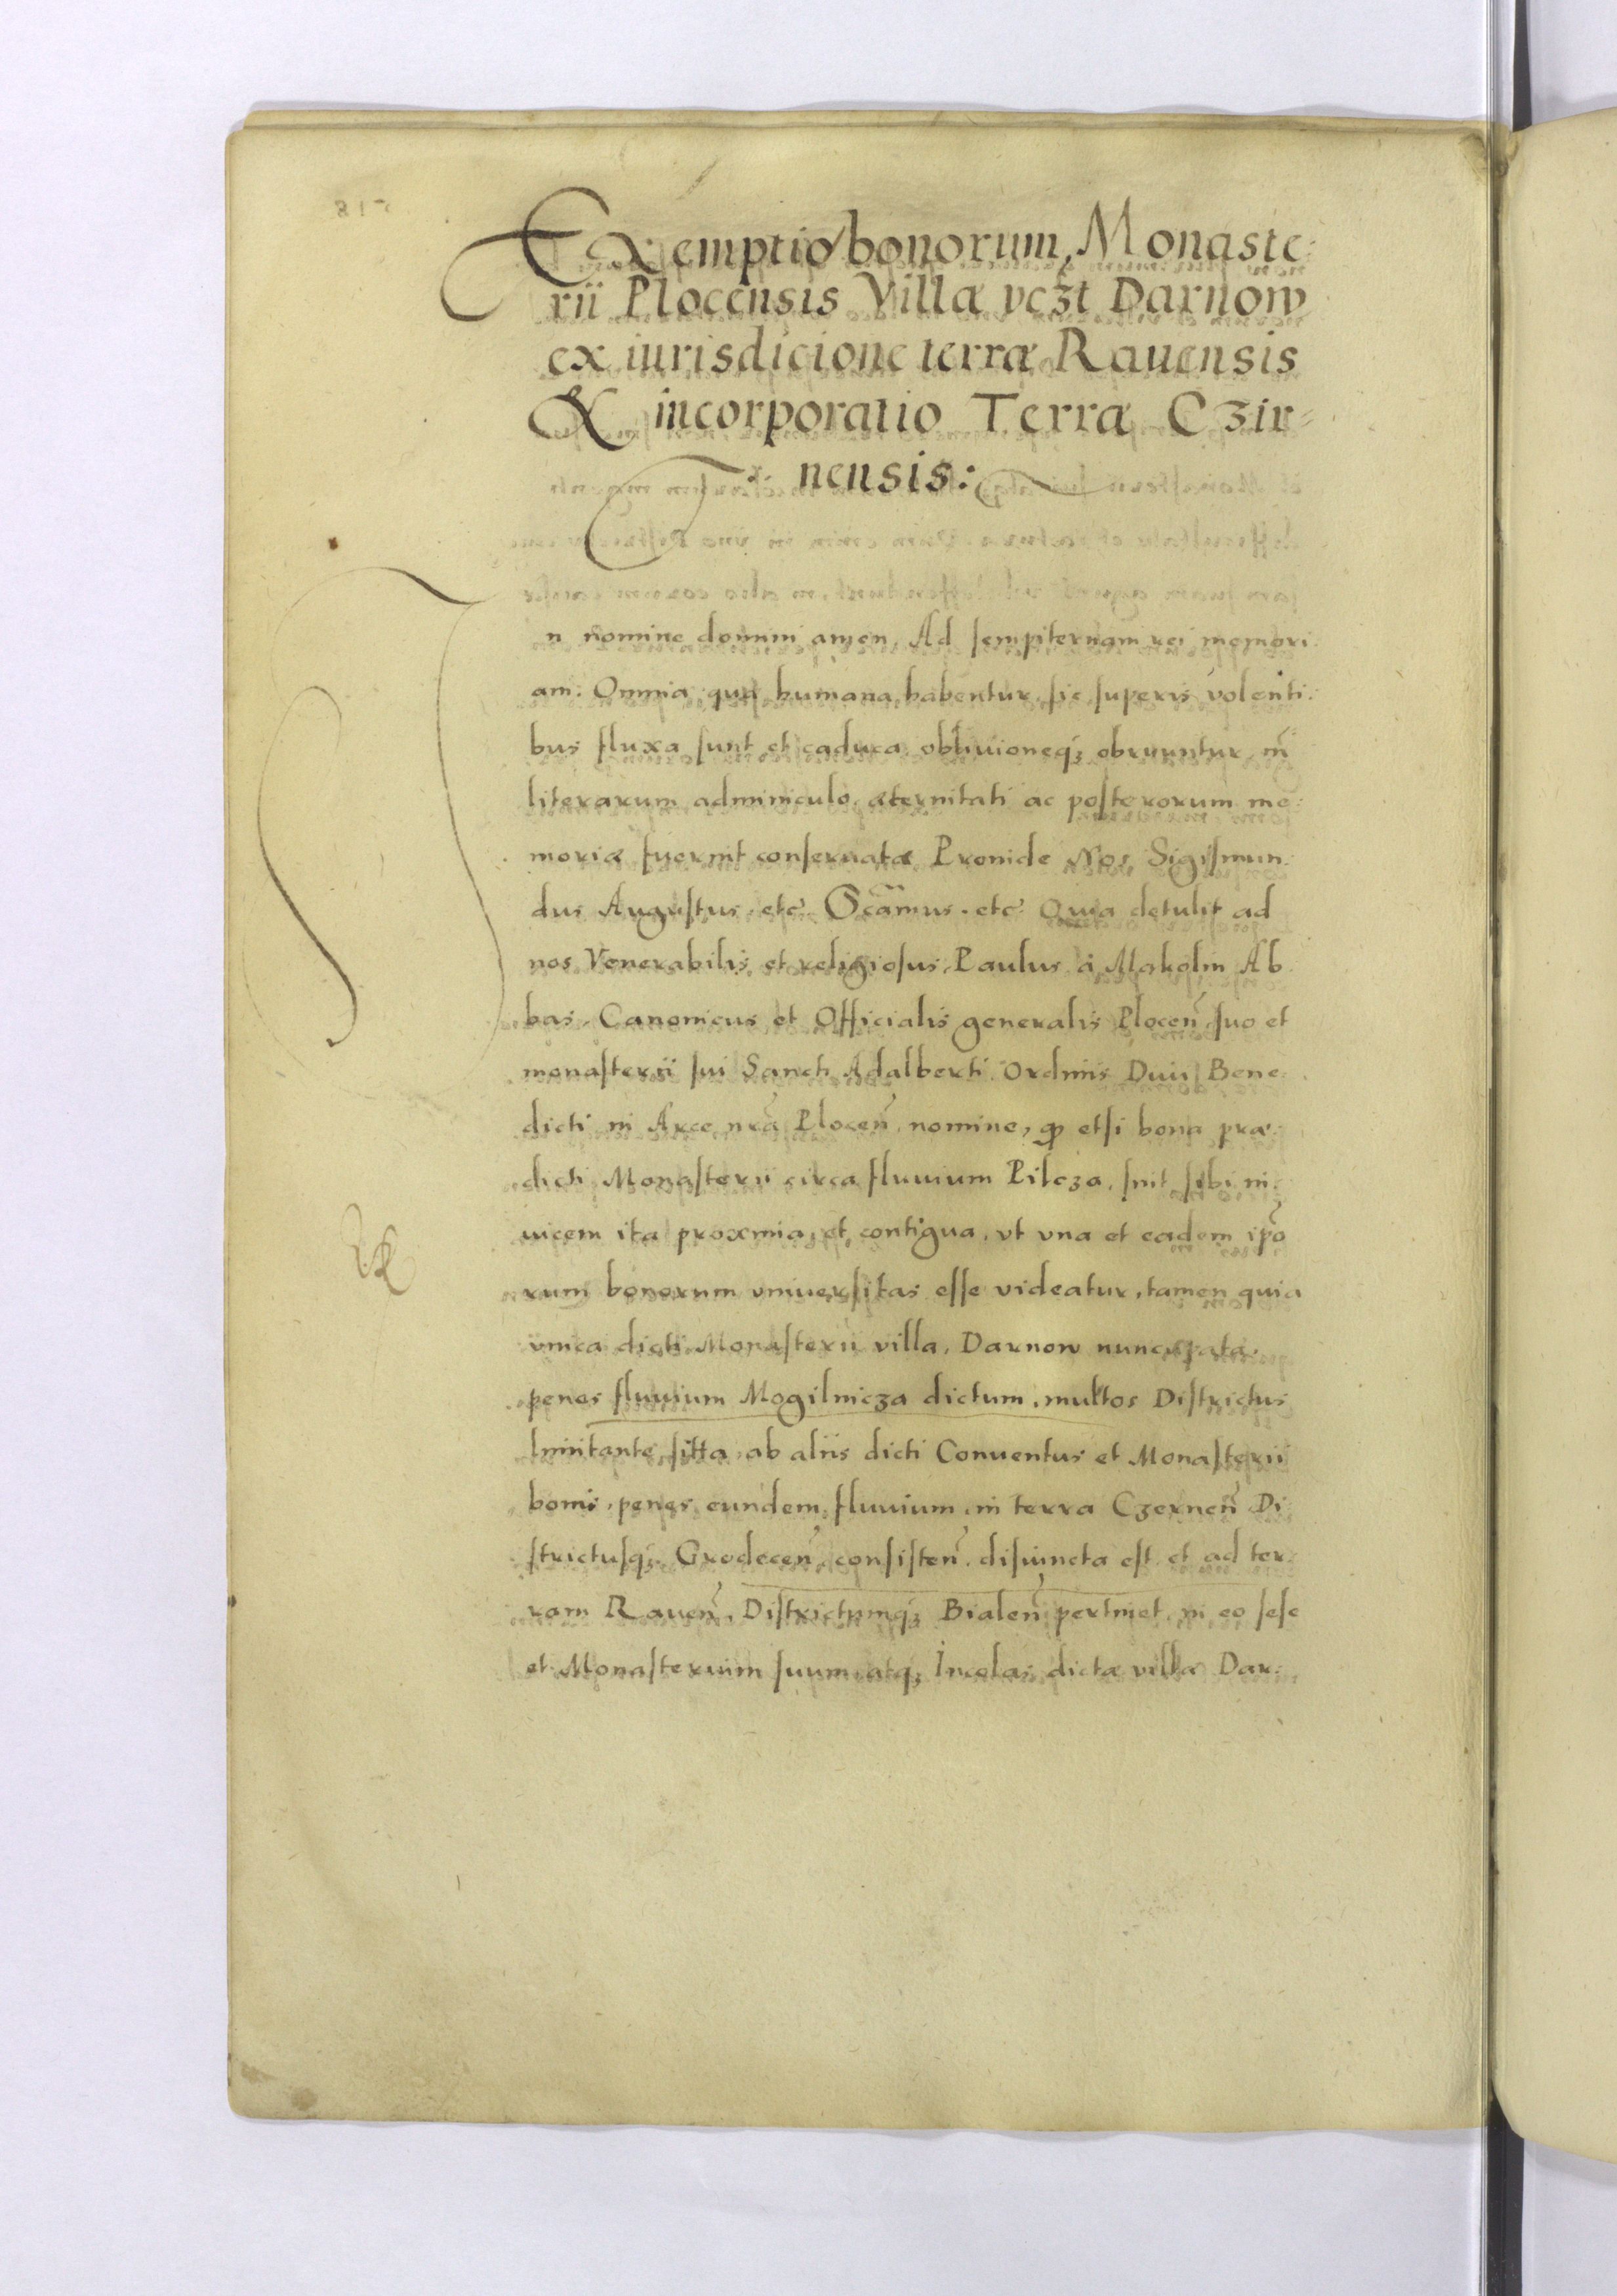 Exemptio bonorum Monaste:
rii Plocensis Villæ vcꝫt Darnow
ex iurisdicione terræ Rauensis
& incorporatio Terræ Cʒir=
nensis:
In nomine domini amen. Ad sempiternam rei memori
am. Omnia quæ humana habentur, sic superis volenti
bus fluxa sunt et caduca obliuioneqꝫ obruuntur, ni
literarum adminiculo æternitati ac posterorum me:
moriæ fuerint conseruatæ Proinde Nos Sigismun
dus Augustus etc̃ Sc̃amus. etc̃ Quia detulit ad
nos Venerabilis et religiosus Paulus à Makolin Ab
bas, Canonicus et Officialis generalis Plocen̄ suo et
monasterii sui Sancti Adalberti Ordinis Diui Bene
dicti in Arce nrã Plocen̄ nomine, ꝙ etsi bona præ
dicti Monasterii circa fluuium Pilcza, sint sibi in
uicem ita proxima, et contigua, vt vna et eadem ipõ
rum bonorum vniuersitas esse videatur, tamen quia
vnica dicti Monasterii villa, Darnow nuncupata
penes fluuium Mogilnicza dictum, multos Districtus
limitante sitta, ab aliis dicti Conuentus et Monasterii
bonis, penes eundem fluuium, in terra Czernen̄ Di
strictusqꝫ Grodecen̄ consisten̄ disiuncta est et ad ter
ram Rauen̄, Districtumqꝫ Bialen̄ pertinet, in eo sese
et Monasterium suum, atqꝫ Incolas dictæ villæ Dar